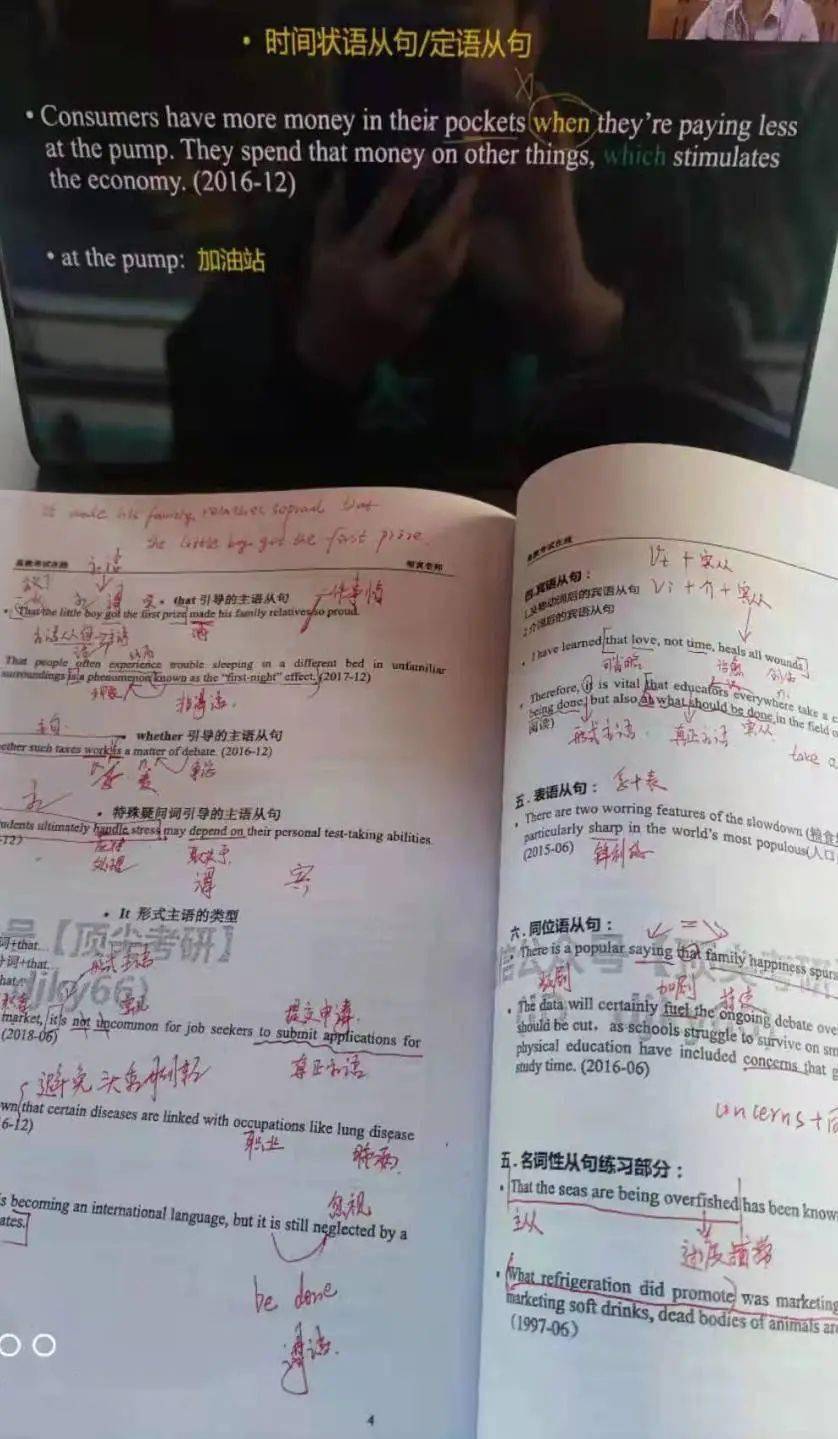 • 时间状语从句/定语从句
• Consumers have more money in their pockets when they're paying less
at the pump. They spend that money on other things, which stimulates
the economy. (2016-12)
• at the pump: 加油站
the little boy got the first prize.
主语
• that 引导的主语从句
一件事情
• That the little boy got the first prize made his family relatives so proud.
谓
That people often experience trouble sleeping in a different bed in unfamiliar
surroundings is a phenomenon known as the "first-night" effect. (2017-12)
whether 引导的主语从句
ether such taxes work is a matter of debate. (2016-12)
系 表
• 特殊疑问词引导的主语从句
udents ultimately handle stress may depend on their personal test-taking abilities.
-12)
处理 取决于
谓 宾
• It 形式主语的类型
号【顶尖考研】
djky66)
词+that...
+词+that...
hat...
形式主语
提交申请
market, it's not uncommon for job seekers to submit applications for
(2018-06)
真正主语
避免
wn that certain diseases are linked with occupations like lung disease
6-12)
职业 肺病
忽视
s becoming an international language, but it is still neglected by a
ates.
be done
谓语
4
四.宾语从句:
Vt + 宾从
1.及物动词后的宾语从句
Vi + 介 + 宾从
2.介词后的宾语从句
• I have learned that love, not time, heals all wounds
治愈 创伤
n.
• Therefore, it is vital that educators everywhere take a c
being done, but also at what should be done in the field o
阅读)
形式主语 真正主语 宾从
take a
五.表语从句:
系+表
• There are two worring features of the slowdown (粮食
particularly sharp in the world's most populous(人口
(2015-06)
锋利的
六.同位语从句:
=
信公众号【顶尖考研
• There is a popular saying that family happiness spurs
加剧 持续
• The data will certainly fuel the ongoing debate ove
should be cut, as schools struggle to survive on sm
physical education have included concerns that g
study time. (2016-06)
concerns+同
五.名词性从句练习部分:
• That the seas are being overfished has been know
主从
过度捕捞
• What refrigeration did promote was marketing
marketing soft drinks, dead bodies of animals ar
(1997-06)